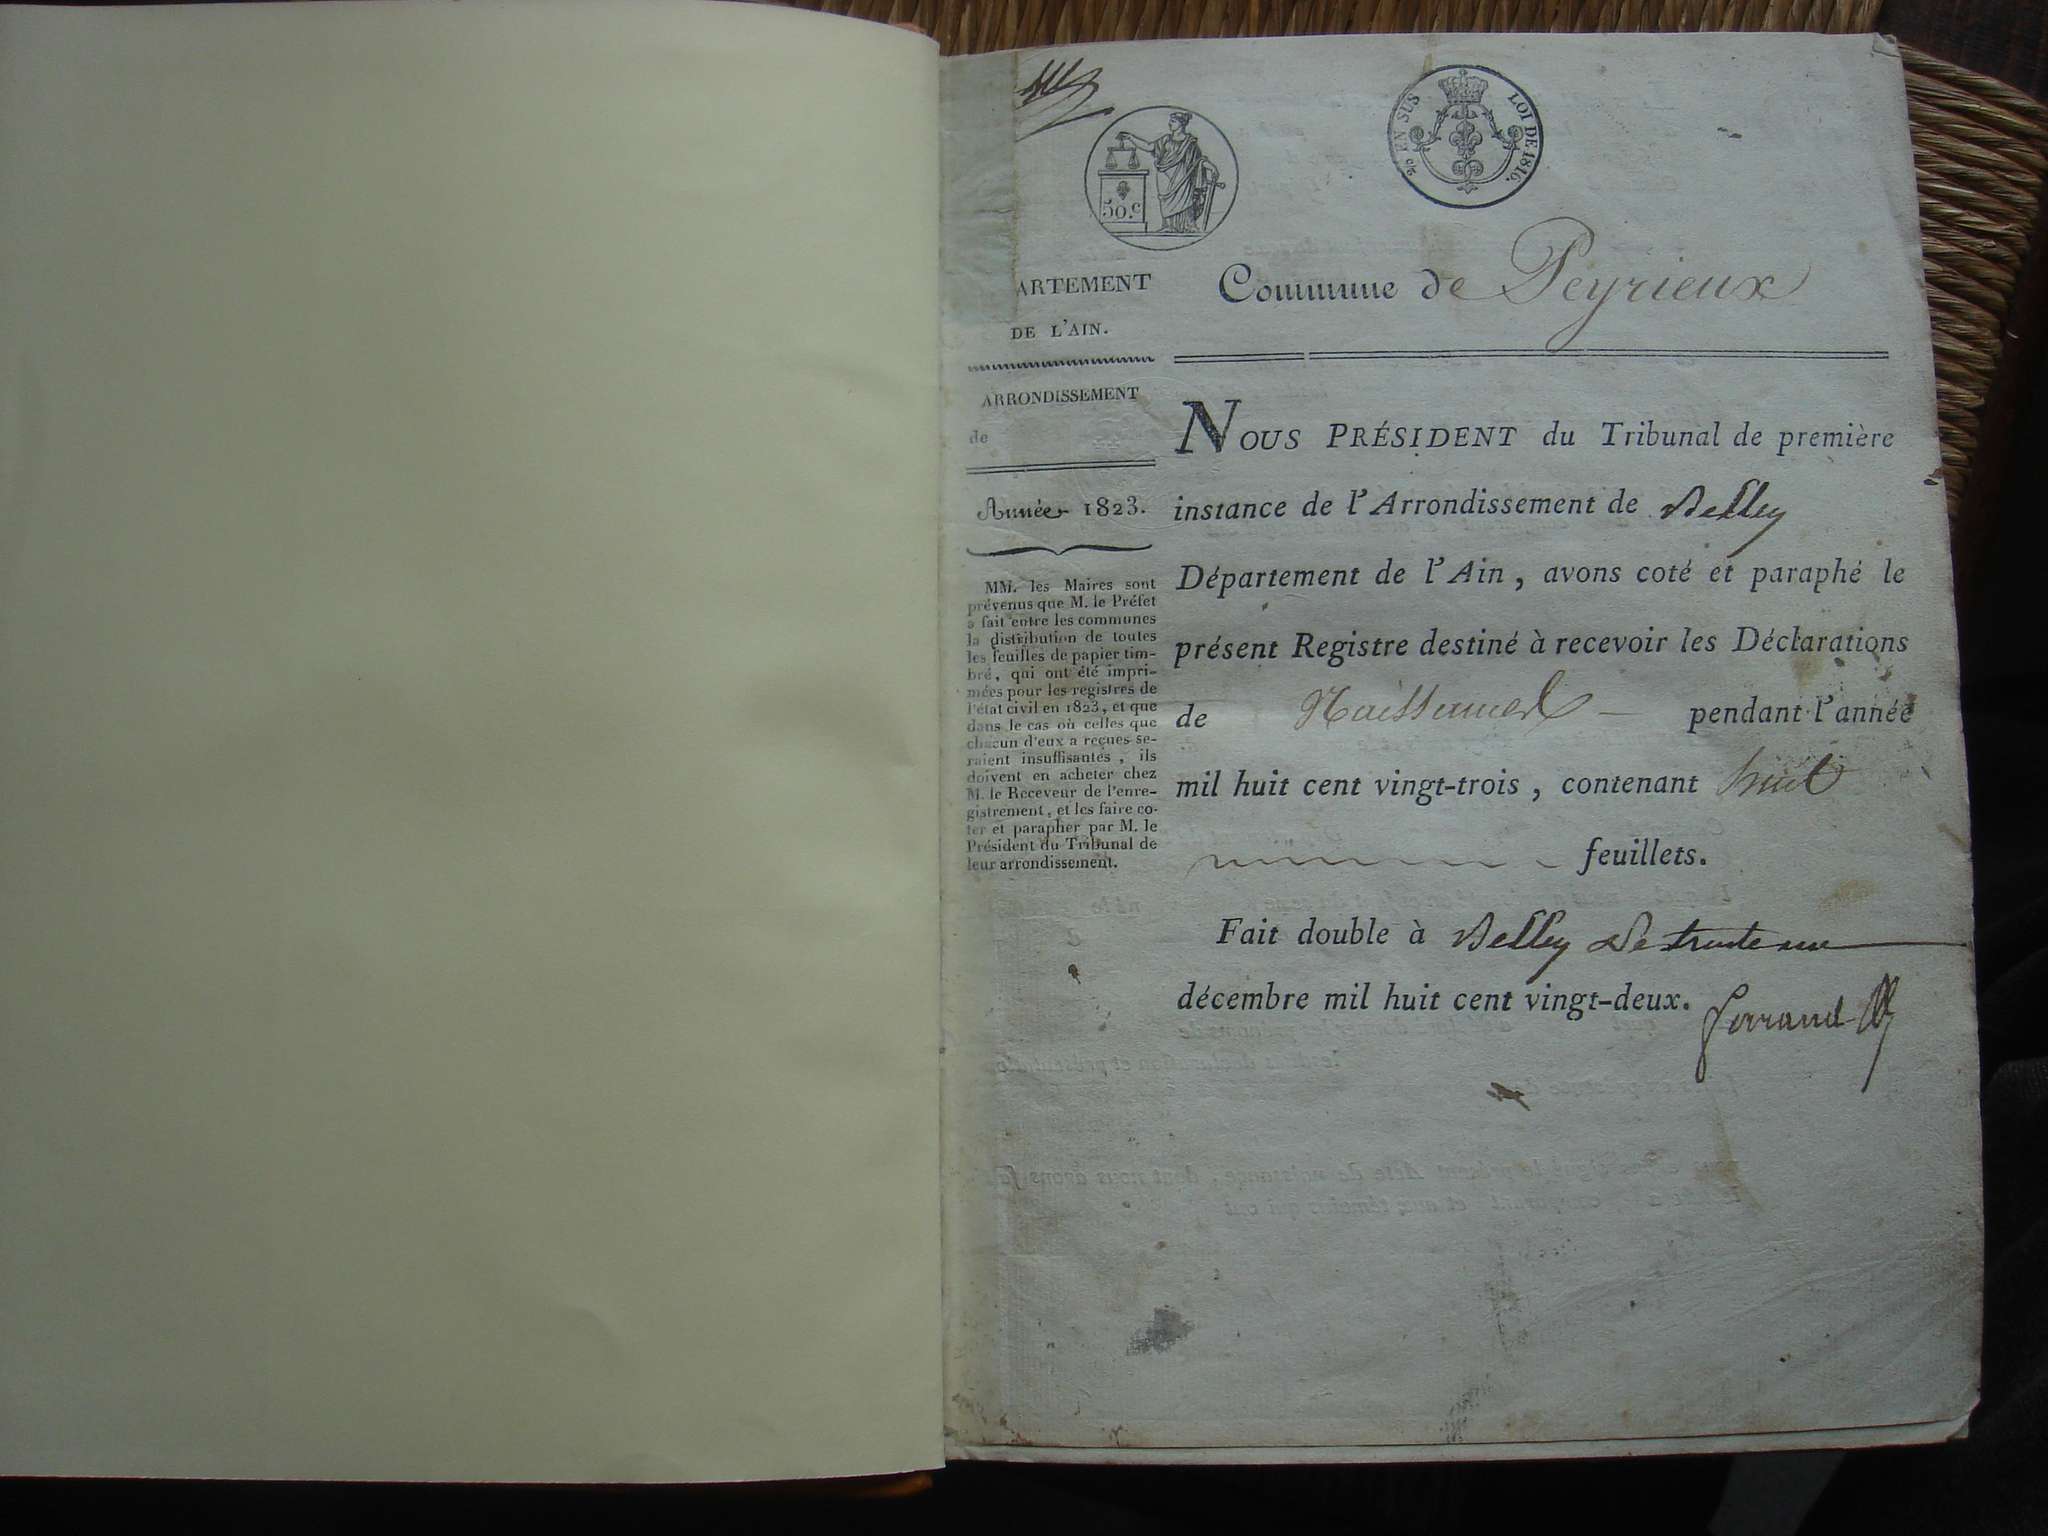 50.c
EN SUS
LOI DE 1816.
ARTEMENT
DE L'AIN.
ARRONDISSEMENT
de
Année 1823.
MM. les Maires sont
prévenus que M. le Préfet
a fait entre les communes
la distribution de toutes
les feuilles de papier tim-
bré, qui ont été impri-
mées pour les registres de
l'état civil en 1823, et que
dans le cas où celles que
chacun d'eux a reçues se-
raient insuffisantes, ils
doivent en acheter chez
M. le Receveur de l'enre-
gistrement, et les faire co-
ter et parapher par M. le
Président du Tribunal de
leur arrondissement.
Commune de Peyrieux
NOUS PRÉSIDENT du Tribunal de première
instance de l'Arrondissement de Belley
Département de l'Ain, avons coté et paraphé le
présent Registre destiné à recevoir les Déclarations
de Naissances pendant l'année
mil huit cent vingt-trois, contenant huit
feuillets.
Fait double à Belley le trente un
décembre mil huit cent vingt-deux.